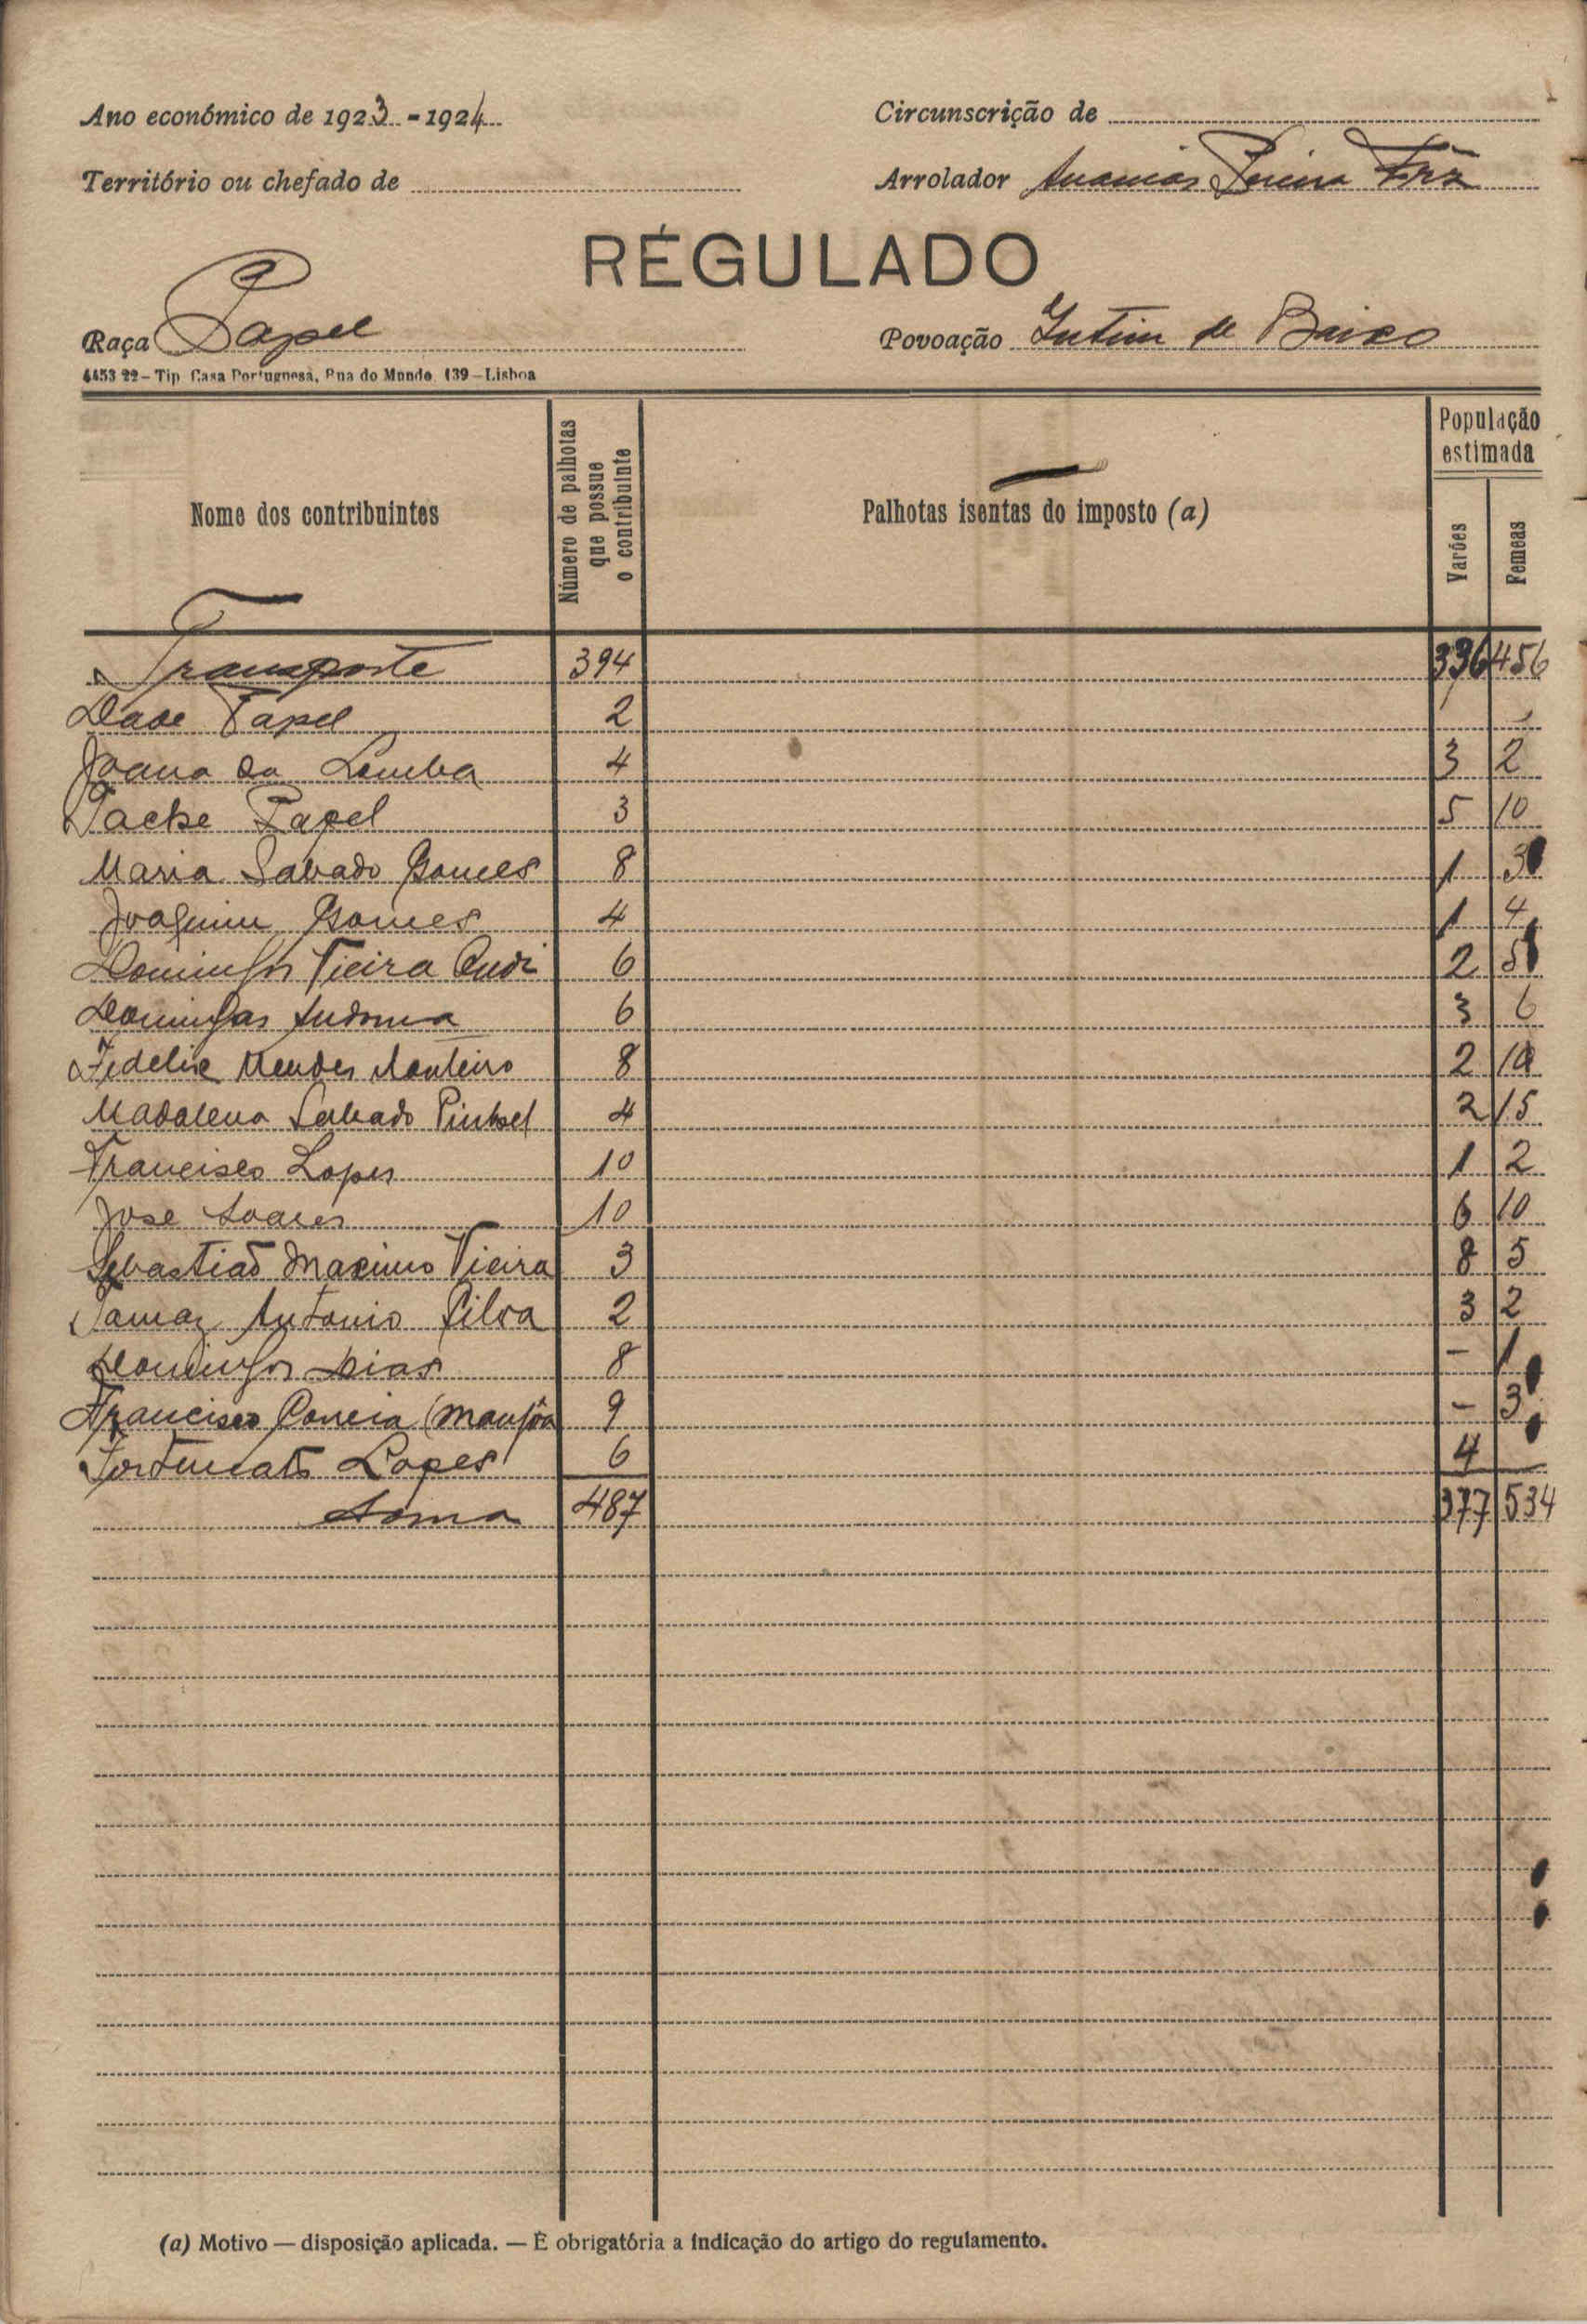 Ano económico de 1923 - 1924 Circunscrição de
Território ou chefado de Arrolador Ananias Pereira
RÉGULADO
Raça Papel Povoação Intim de Baixo
4453 22 – Tip. Casa Portuguesa, Rua do Mundo, 139 – Lisboa
Nome dos contribuintes Número de palhotas que possue o contribuinte Palhotas isentas do imposto (a) População estimada Varões Femeas
Transporte 394 336 456
Dade Papel 2
Joana da Lomba 4 3 2
Papel 3 5 10
Maria Sabado Gomes 8 1 3
Joaquim Gomes 4 1 4
Domingos Vieira 6 2 5
Domingas 6 3 6
Fidelis Mendes Monteiro 8 2 10
Madalena Sabado 4 2 15
Francisco Lopes 10 1 2
José Soares 10 6 10
Sebastião Maximo Vieira 3 8 5
Tamaz Antonio Silva 2 3 2
Domingos Dias 8 – 1
Francisco Correia (Mansôa 9 – 3
Fortunato Lopes 6 4
Soma 487 377 534
(a) Motivo — disposição aplicada. — É obrigatória a indicação do artigo do regulamento.